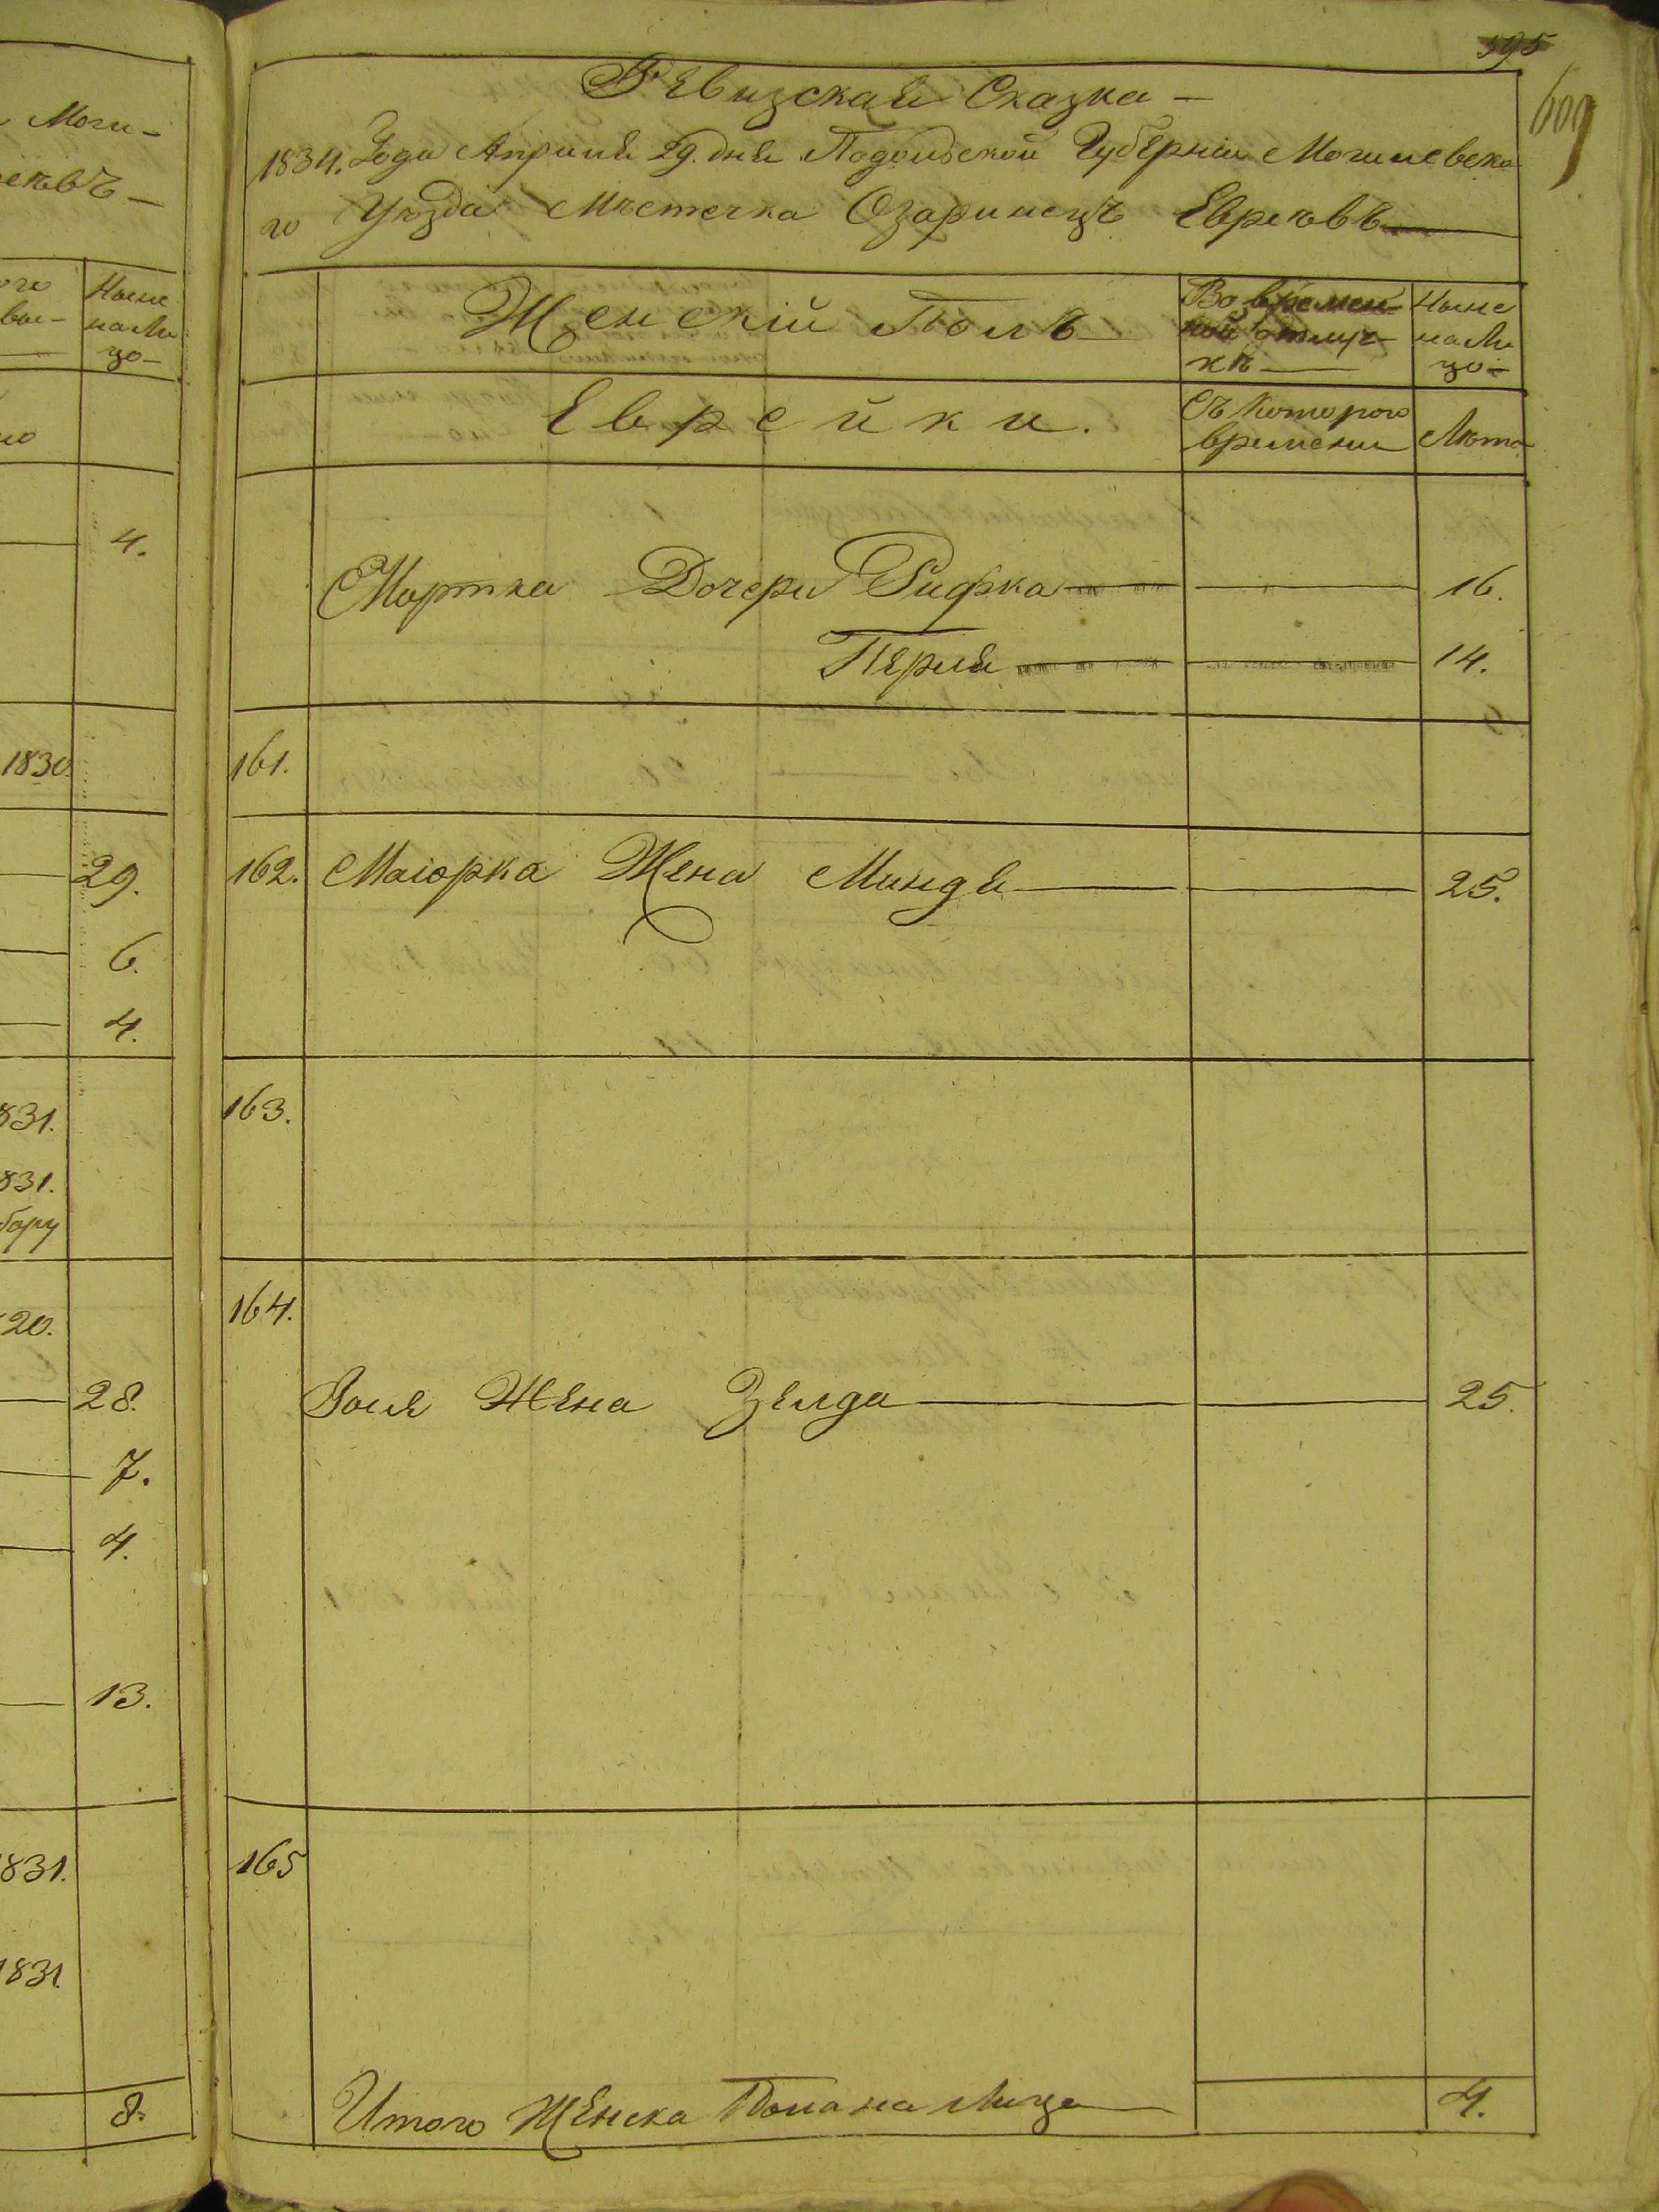 Моги-
1830.
4.
29.
6.
4.
831.
831.
20.
28.
7.
4.
13.
831.
1831.
8.
595
609
Ревизская Сказка —
1834. Года Апреля 29. дня Подольской Губерніи Могилевска
го Уѣзда Мѣстечка Озаринецъ Евреевъ
Женскій Полъ
Во времен-
ной отлуч-
кѣ
Ныне
на Ли
цо
Еврейки.
Съ Которого
времени
Лѣта
Мортка Дочери Рифка 16.
Перля 14.
161.
162. Маіорка Жена Миндя 25.
163.
164.
Жена Зелда 25.
165
Итого Женска Пола на Лице 4.